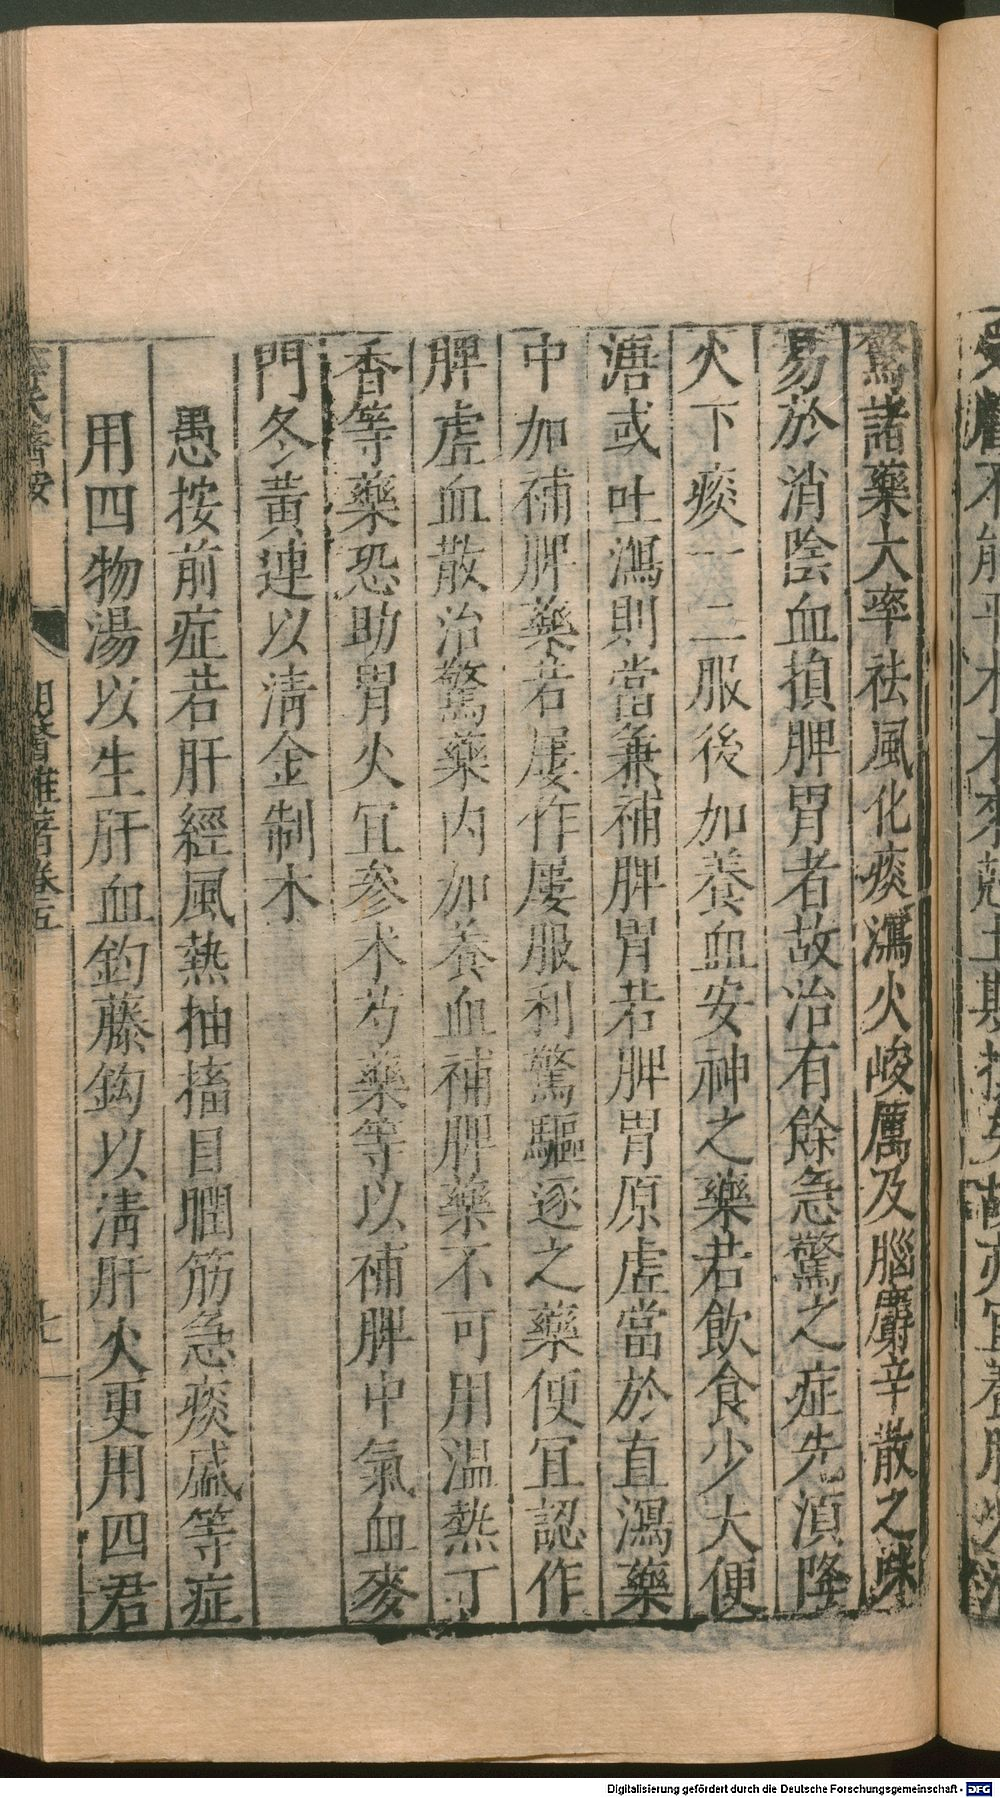 驚諸藥大率祛風化痰瀉火峻厲及腦麝辛散之味
易於消陰血損脾胃者故治有餘急驚之症先湏降
火下痰一二服後加養血安神之藥若飲食少大便
溏或吐瀉則當兼補脾胃若脾胃原虛當於直瀉藥
中加補脾藥若屡作屡服利驚驅逐之藥便宜認作
脾虛血散治驚藥内加養血補脾藥不可用温熱丁
香等藥恐助胃火宜參术芍藥等以補脾中氣血麥
門冬黄連以清金制木
愚按前症若肝經風熱抽搐目瞤筋急痰盛等症
用四物湯以生肝血鈞藤鈎以清肝火更用四君
醫按
明醫雜著卷五
七
Digitalisierung gefördert durch die Deutsche Forschungsgemeinschaft - DFG